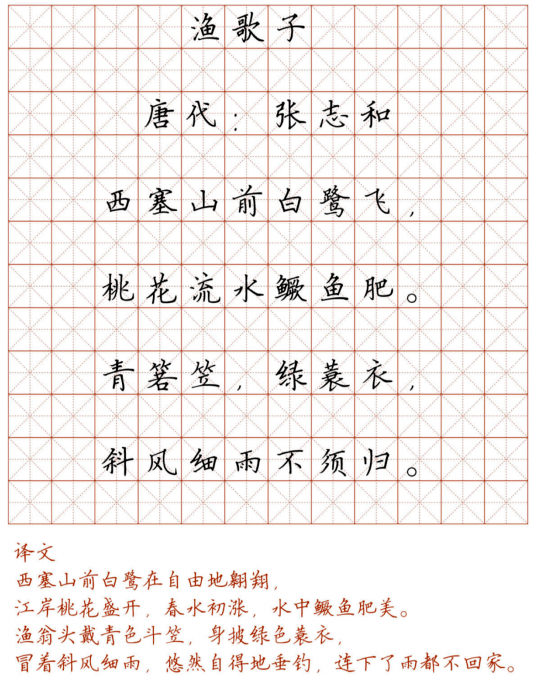 渔歌子
唐代：张志和
西塞山前白鹭飞，
桃花流水鳜鱼肥。
青箬笠，绿蓑衣，
斜风细雨不须归。
译文
西塞山前白鹭在自由地翱翔，
江岸桃花盛开，春水初涨，水中鳜鱼肥美。
渔翁头戴青色斗笠，身披绿色蓑衣，
冒着斜风细雨，悠然自得地垂钓，连下了雨都不回家。